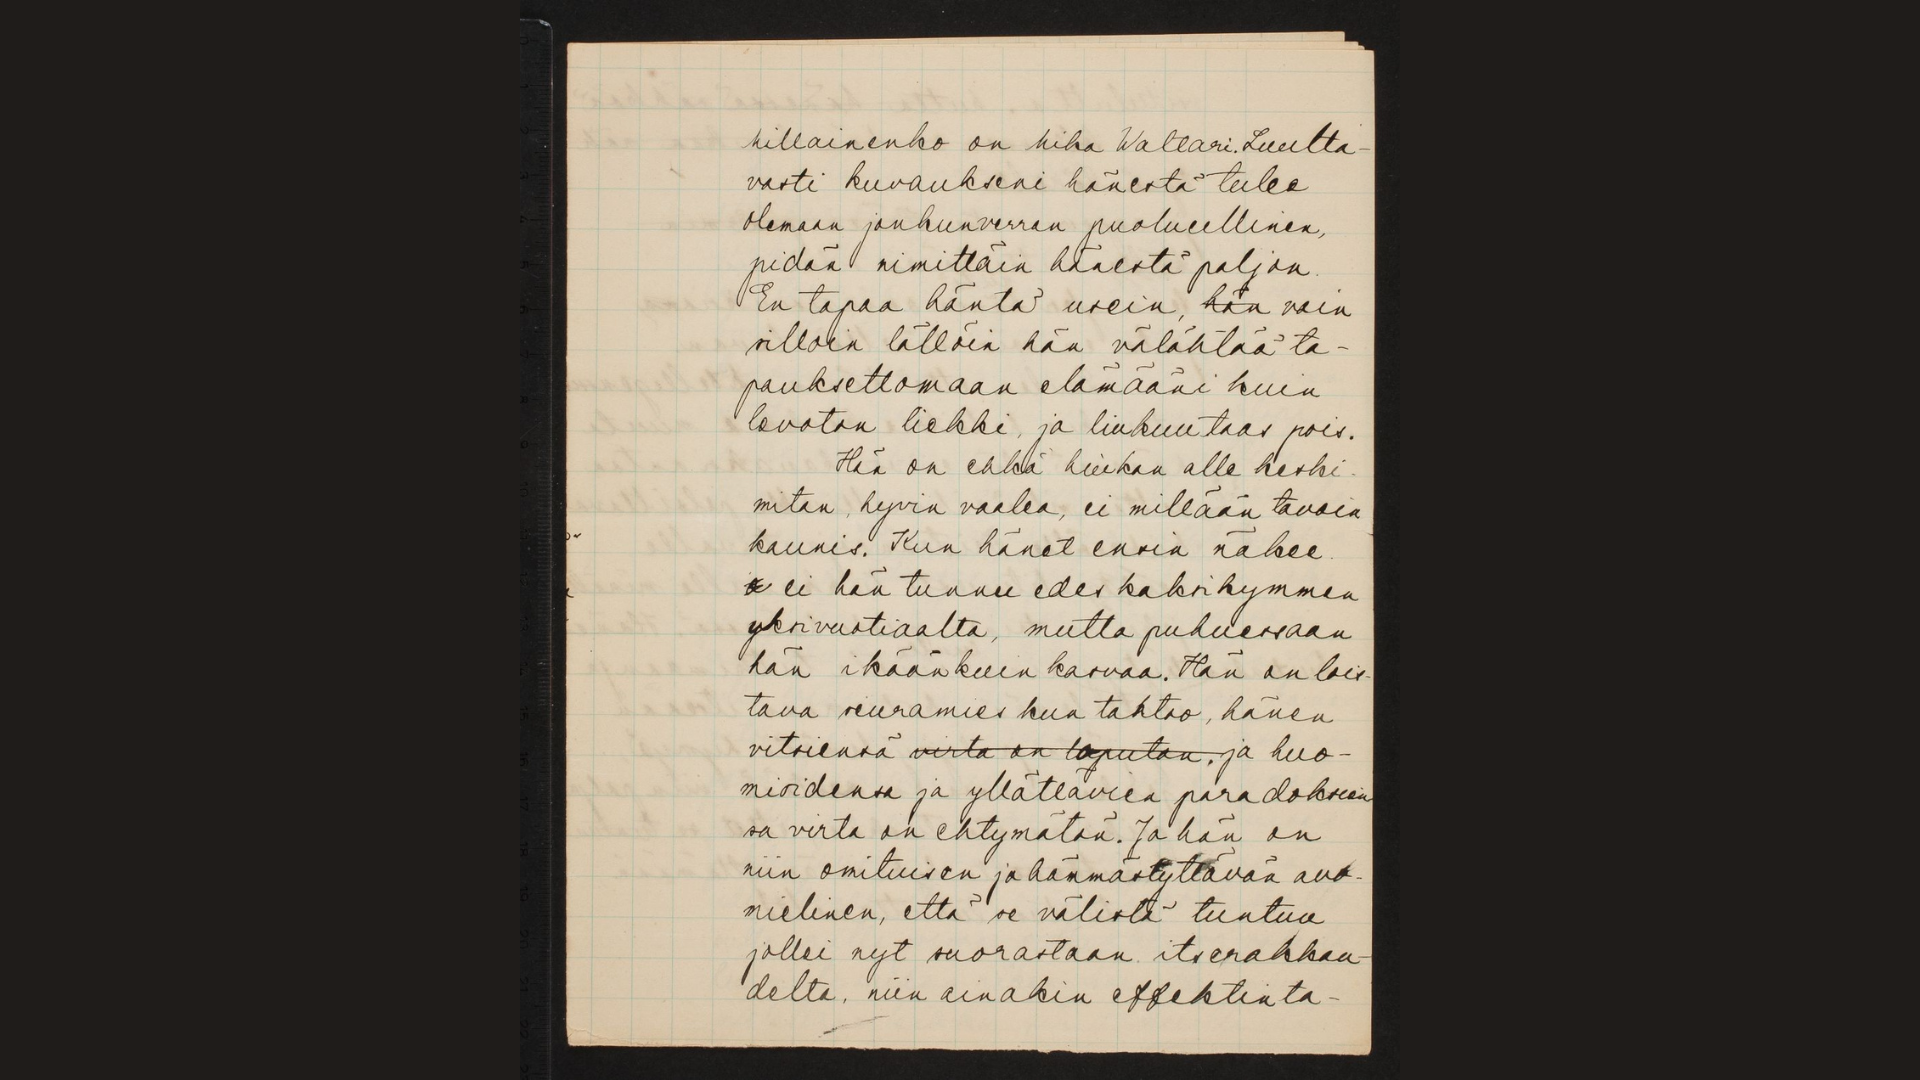 millainenko on Mika Waltari. Luulta-
vasti kuvaukseni hänestä tulee
olemaan jonkunverran puolueellinen,
pidän nimittäin hänestä paljon.
En tapaa häntä usein, hän vain
silloin tällöin hän välähtää ta-
pauksettomaan elämääni kuin
levoton liekki, ja liukuu taas pois.
Hän on ehkä hiukan alle keski-
mitan, hyvin vaalea, ei millään tavoin
kaunis. Kun hänet ensin näkee
ei hän tunnu edes kaksikymmen
yksivuotiaalta, mutta puhuessaan
hän ikäänkuin kasvaa. Hän on lois-
tava seuramies kun tahtoo, hänen
vitsiensä virta on loputon. ja huo-
mioidensa ja yllättävien paradoksien
sa virta on ehtymätön. Ja hän on
niin omituisen ja hämmästyttävän avo-
mielinen, että se välistä tuntuu
jollei nyt suorastaan itserakkau-
delta, niin ainakin effektinta-